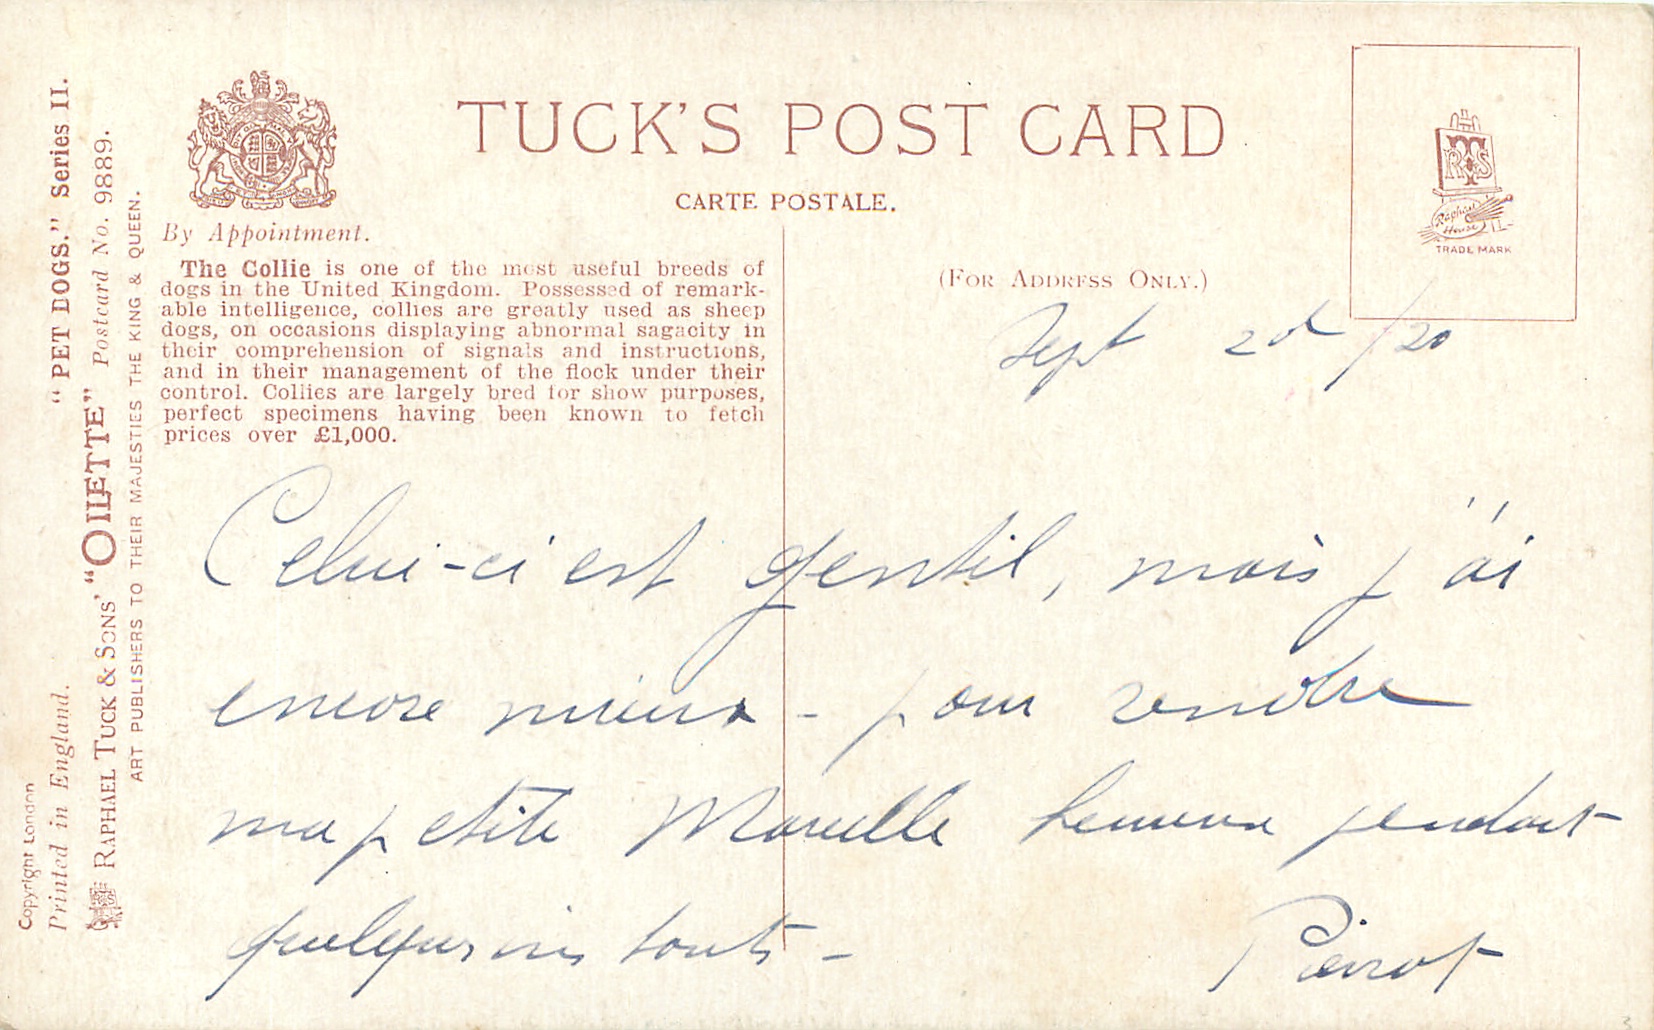 TUCK'S POST CARD
CARTE POSTALE.
By Appointment.
(FOR ADDRESS ONLY.)
TRADE MARK
Raphael
House
The Collie is one of the most useful breeds of
dogs in the United Kingdom. Possessed of remark-
able intelligence, collies are greatly used as sheep
dogs, on occasions displaying abnormal sagacity in
their comprehension of signals and instructions,
and in their management of the flock under their
control. Collies are largely bred for show purposes,
perfect specimens having been known to fetch
prices over £1,000.
Sept 2d /20
Celui-ci est gentil, mais j'ai
encore mieux - pour rendre
ma petite Marcelle heureuse pendant
quelques instants -
Pierrot
"PET DOGS." Series II.
RAPHAEL TUCK & SONS' "OILETTE" Postcard No. 9889.
ART PUBLISHERS TO THEIR MAJESTIES THE KING & QUEEN.
Copyright London
Printed in England.